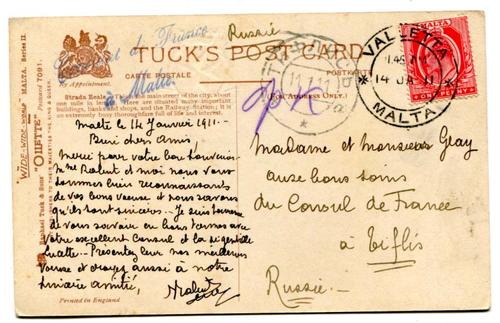 Russie
Consulat de France
à Malte
TUCK'S POST CARD
By Appointment.
CARTE POSTALE
POSTKARTE
(FOR ADDRESS ONLY.)
VALLETTA
14 JA 11
MALTA
MALTA
"WIDE-WIDE-WORLD" MALTA. Series II.
"OILETTE" Postcard 7091.
Raphael Tuck & Sons'
Strada Reale the main street of the city, about
one mile in length. Here are situated many important
buildings, banks and shops, and the Railway Station; it is
an extremely busy thoroughfare full of life and interest.
Malte le 14 Janvier 1911.
Bien chers Amis,
Merci pour votre bon souvenir.
Mme et moi nous vous
sommes bien reconnaissants
de vos bons vœux et nous savons
qu'ils sont sincères. Je suis
de vous savoir en bons termes avec
votre excellent Consul et la gentille
Présentez leur nos meilleurs
vœux et croyez aussi à notre
sincère amitié,
Madame et Monsieur Gray
aux bons soins
du Consul de France
à Tiflis
Russie
Printed in England